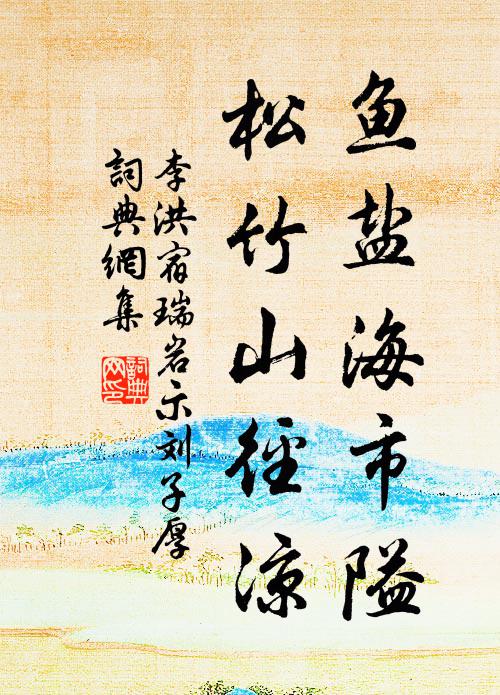 鱼盐海市隘
松竹山径凉
李洪宿瑞岩示刘子厚
詞典網集
詞典网印